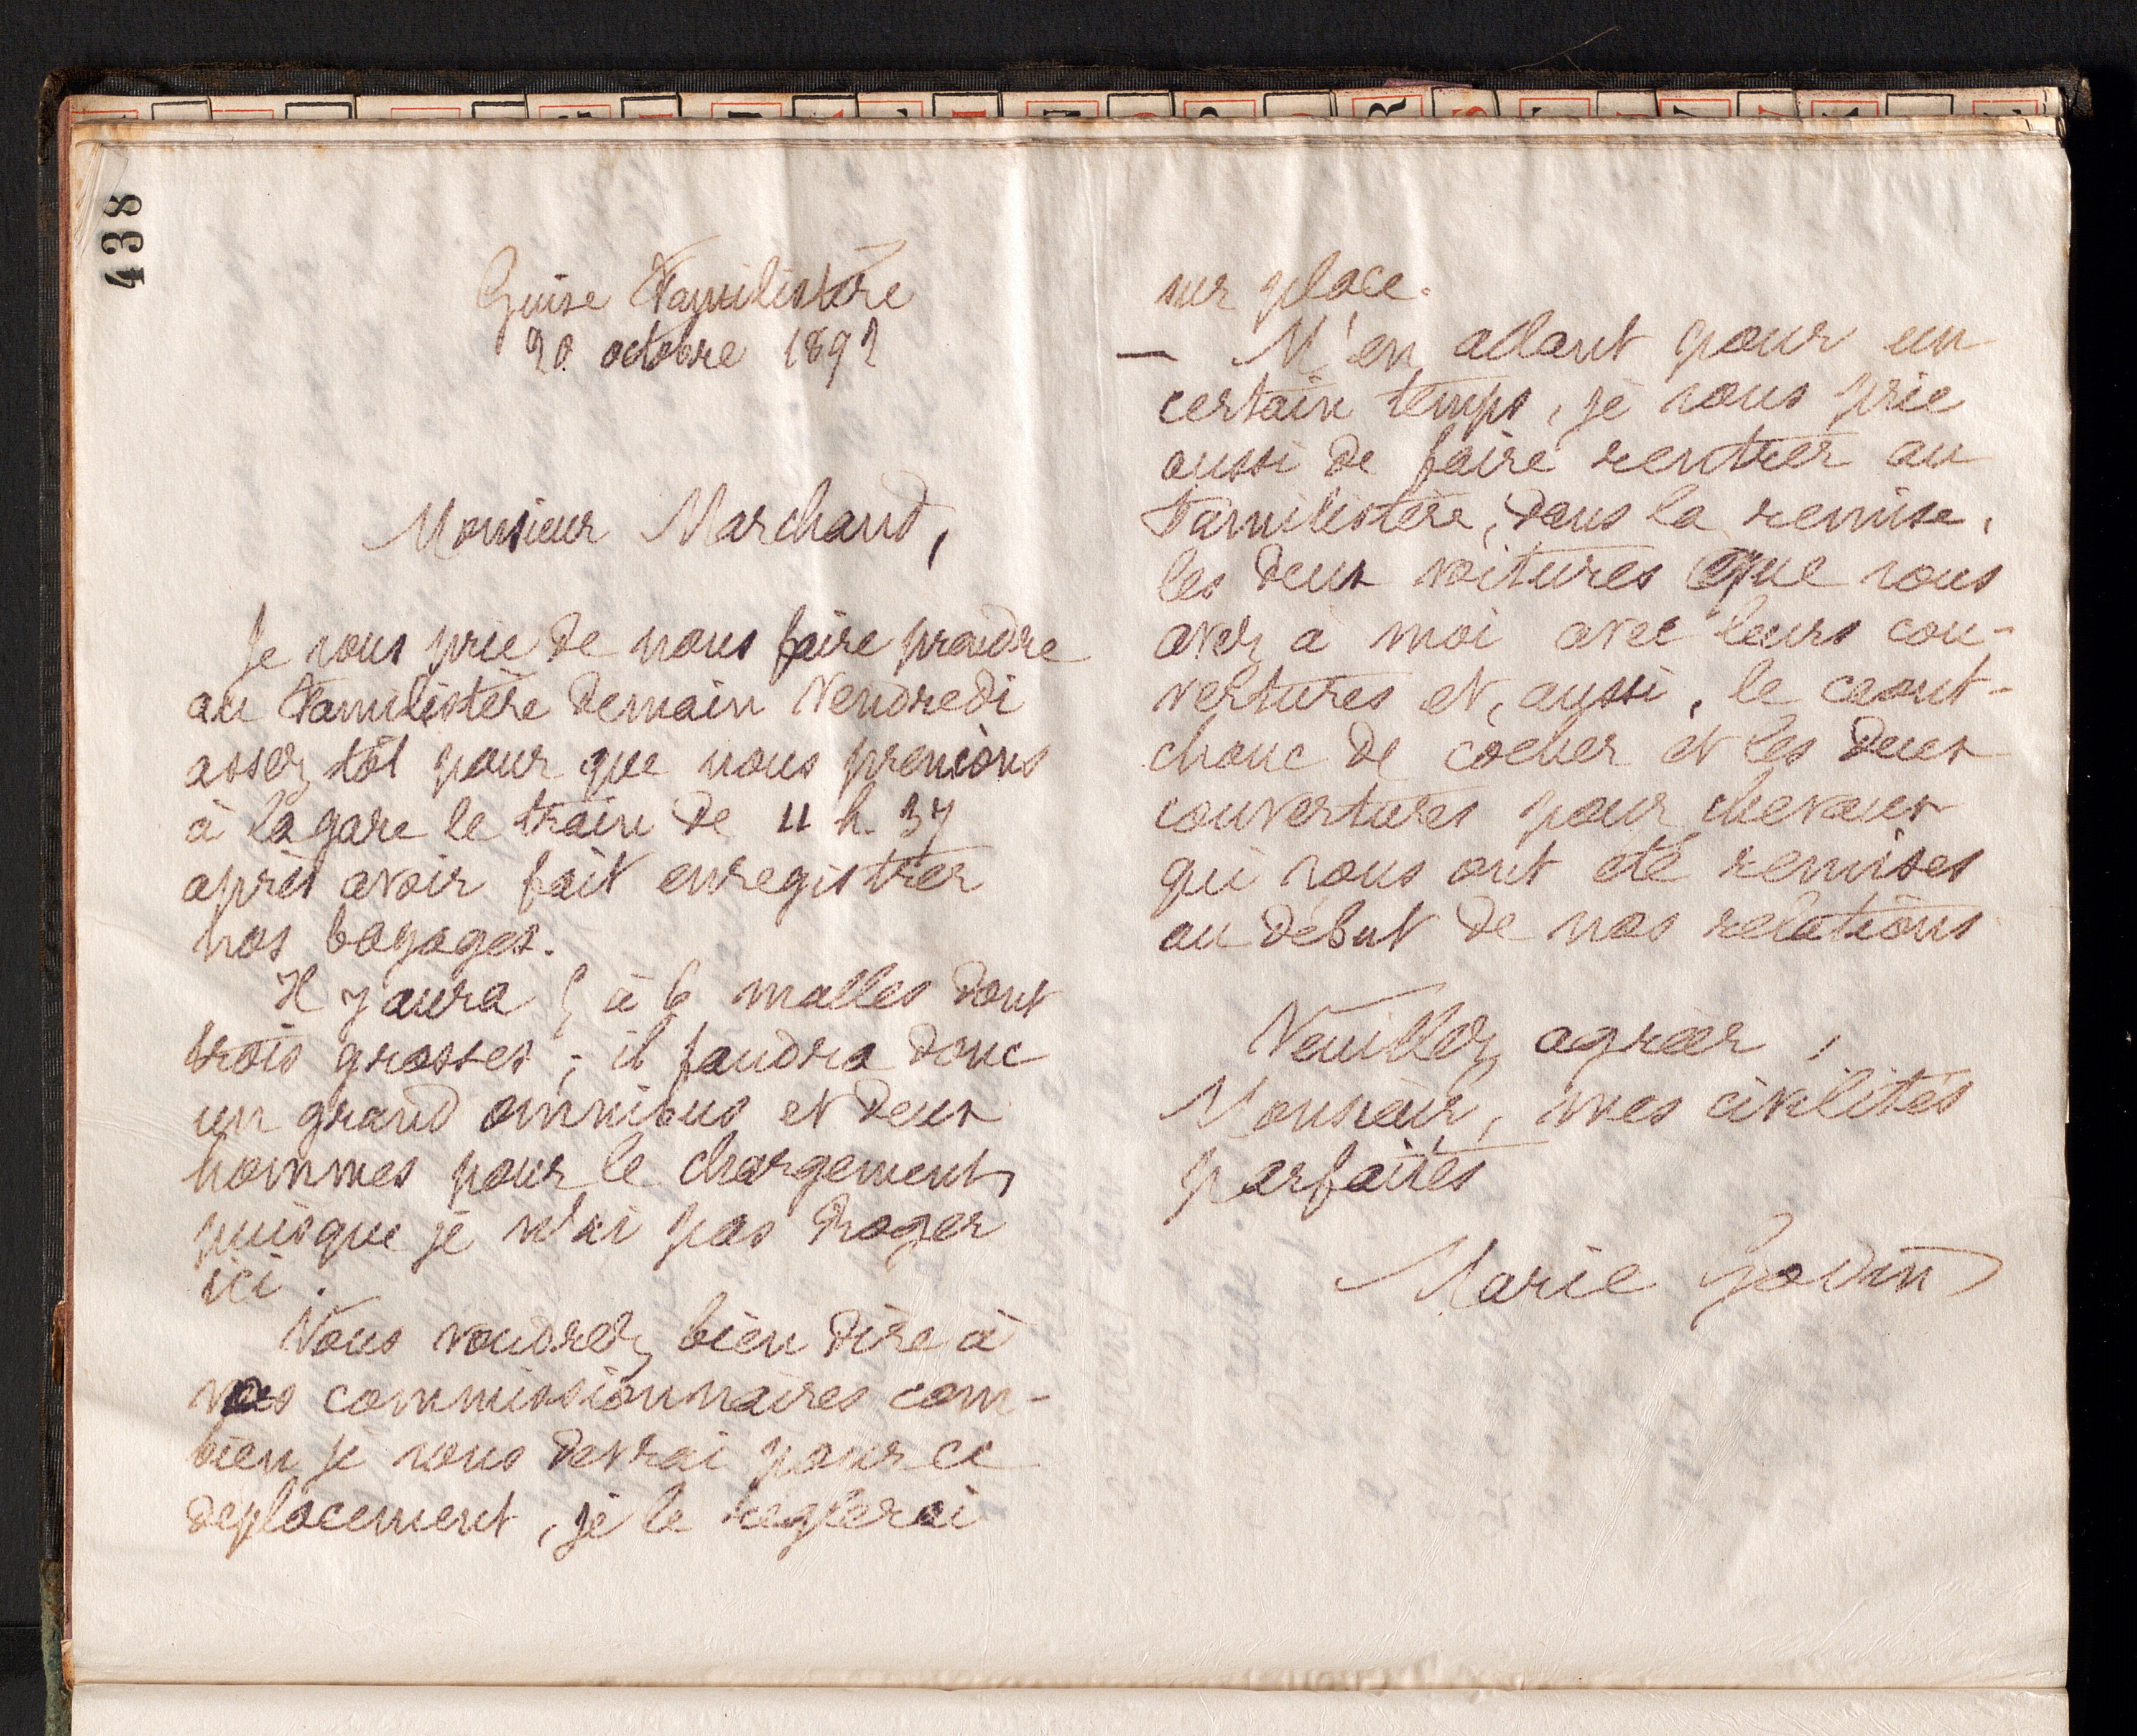 438
Guise Familistère
20 octobre 1892
Monsieur Marchand,
Je vous prie de nous faire prendre
au Familistère demain Vendredi
assez tôt pour que nous prenions
à la gare le train de 11 h. 37
après avoir fait enregistrer
nos bagages.
Il y aura 5 à 6 malles dont
trois grosses ; il faudra donc
un grand omnibus et deux
hommes pour le chargement,
puisque je n'ai pas Roger
ici.
Vous voudrez bien dire à
vos commissionnaires com-
bien je vous devrai pour ce
déplacement, je le règlerai
sur place.
— M'en allant pour un
certain temps, je vous prie
aussi de faire rentrer au
Familistère, dans la remise,
les deux voitures que vous
avez à moi avec leurs cou-
vertures et, aussi, le caout-
chouc de cocher et les deux
couvertures pour chevaux
qui vous ont été remises
au début de nos relations
Veuillez agréer,
Monsieur, mes civilités
parfaites
Marie Godin